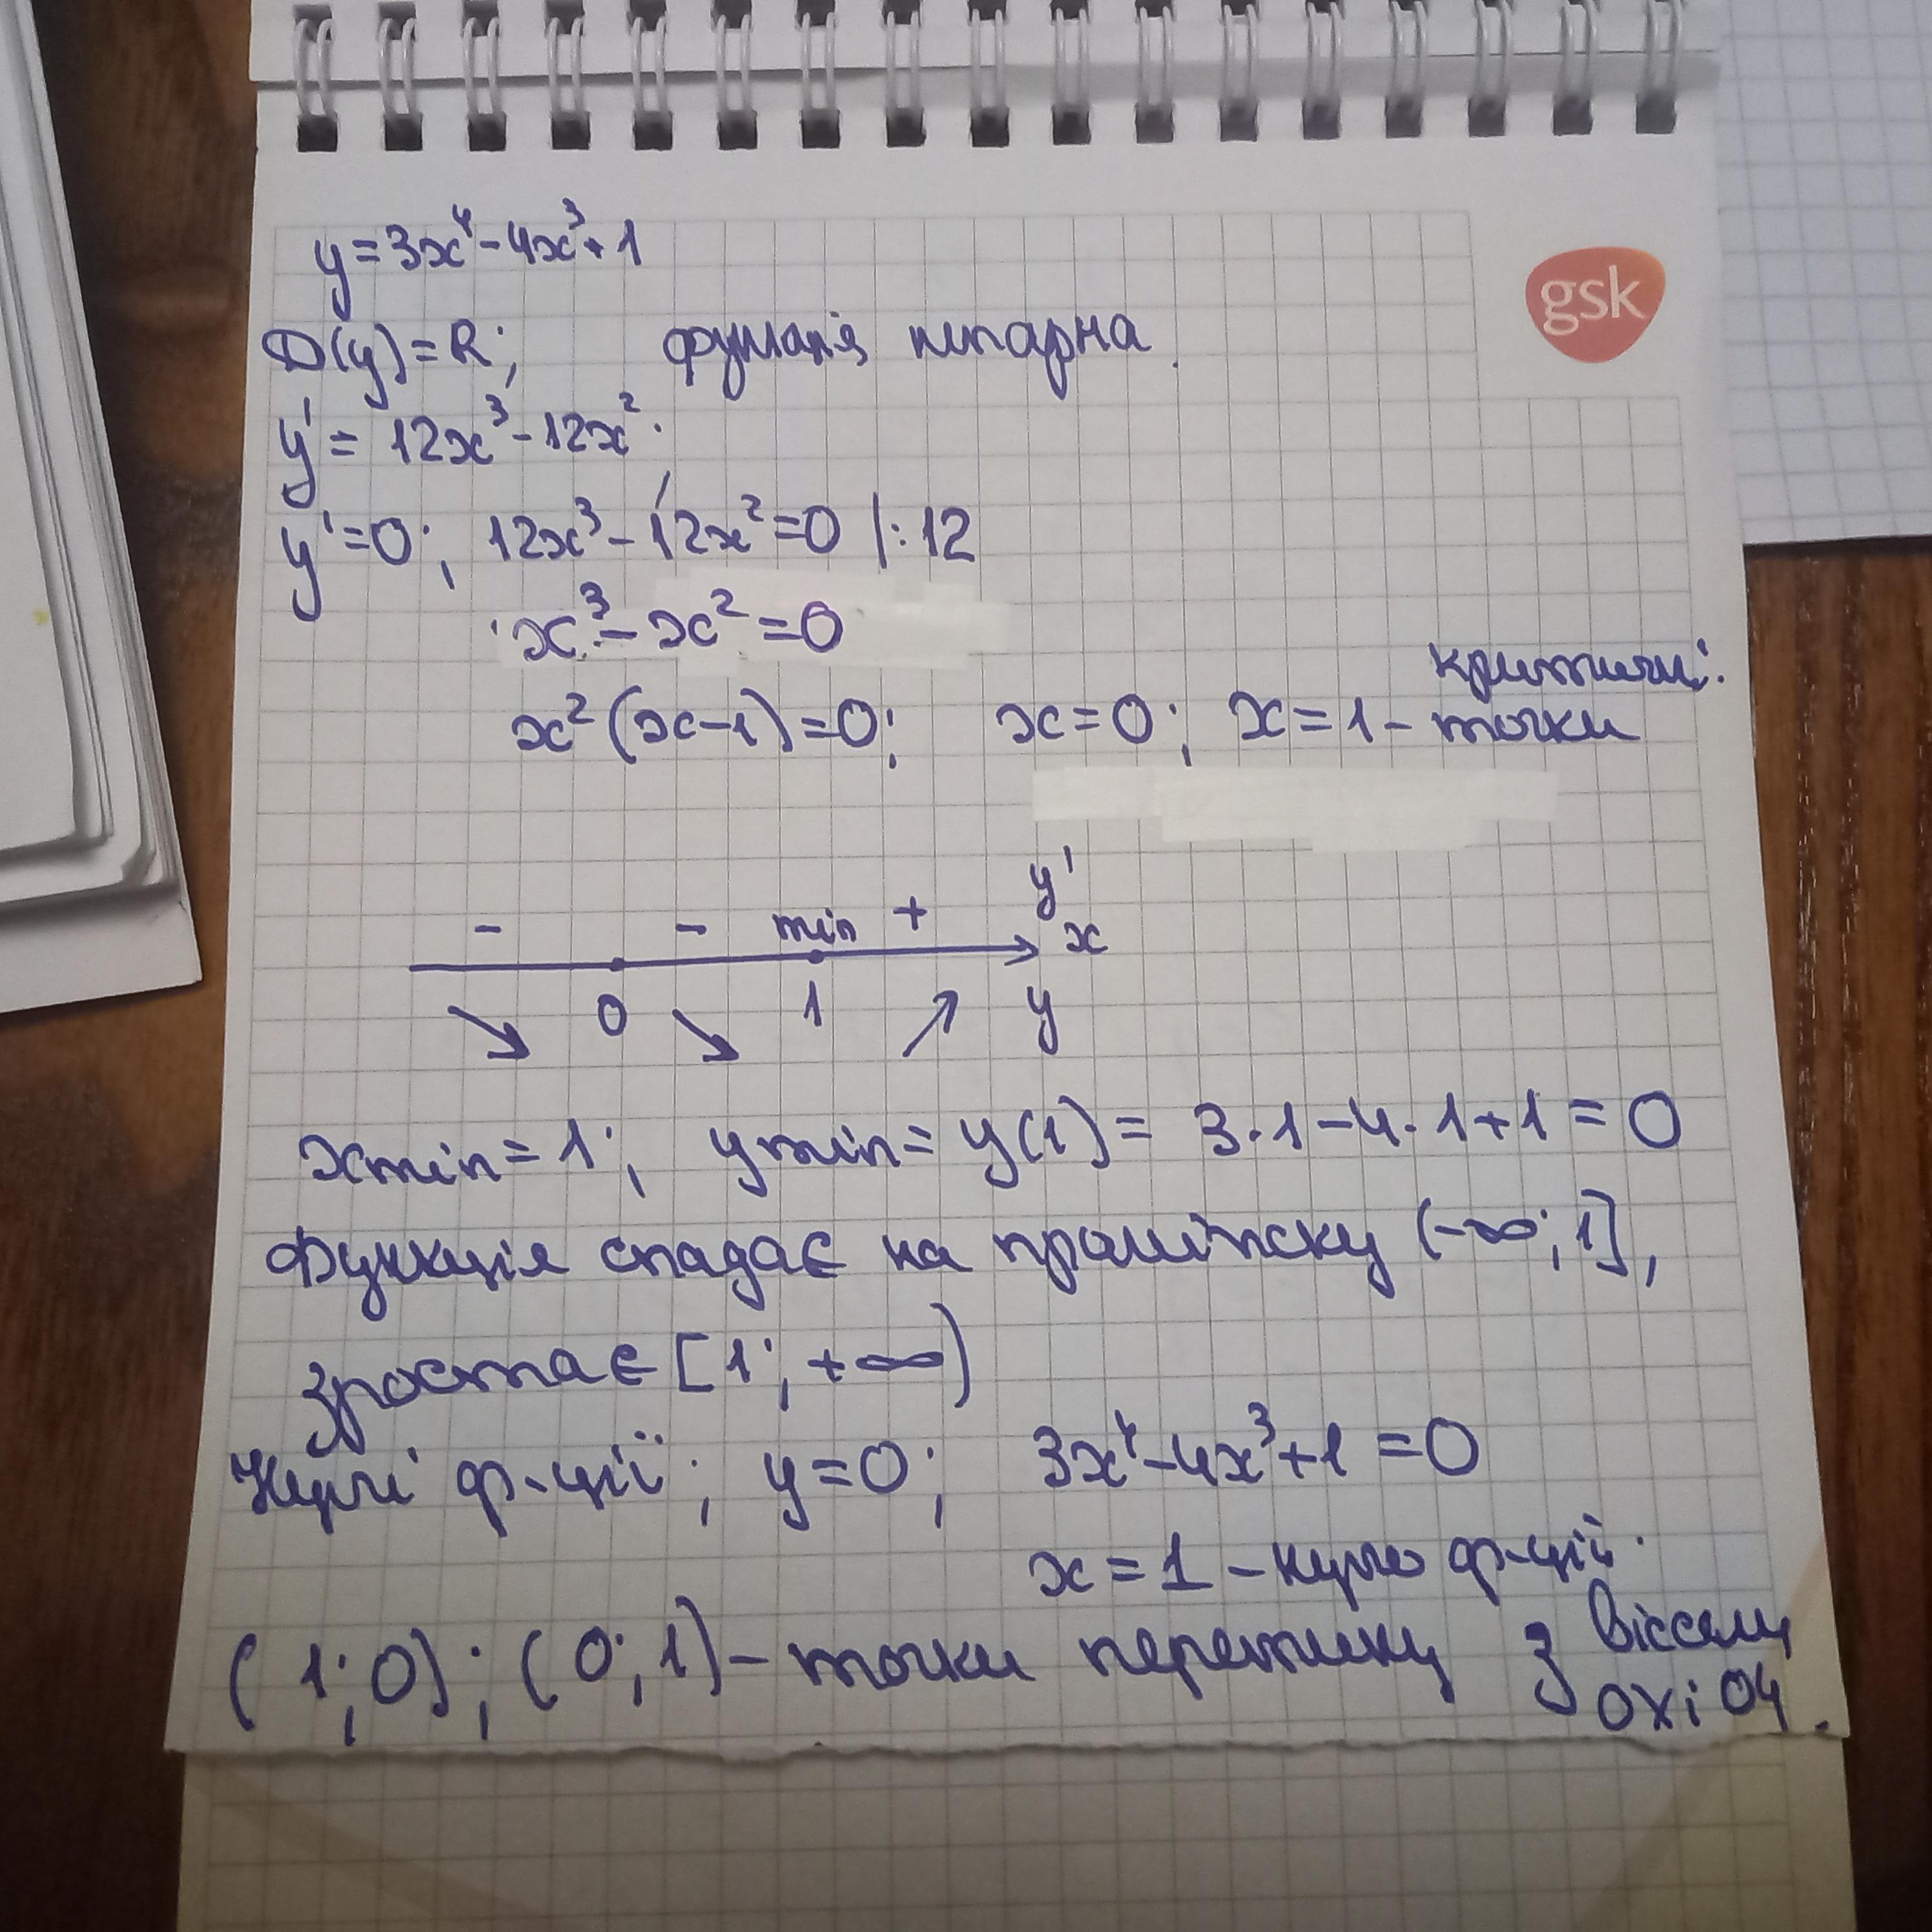 y = 3x⁴ - 4x³ + 1
gsk
D(y) = R; функція непарна.
y' = 12x³ - 12x².
y' = 0; 12x³ - 12x² = 0 |:12
x³ - x² = 0
критичні
x² (x-1) = 0; x = 0; x = 1 - точки
y'
- - min + x
0 1 y
xmin = 1; ymin = y(1) = 3·1 - 4·1 + 1 = 0
Функція спадає на проміжку (-∞; 1],
зростає [1; +∞)
Нулі ф-ції; y = 0; 3x⁴ - 4x³ + 1 = 0
x = 1 - нуль ф-ції.
(1; 0); (0; 1) - точки перетину з віссями
OX i OY.